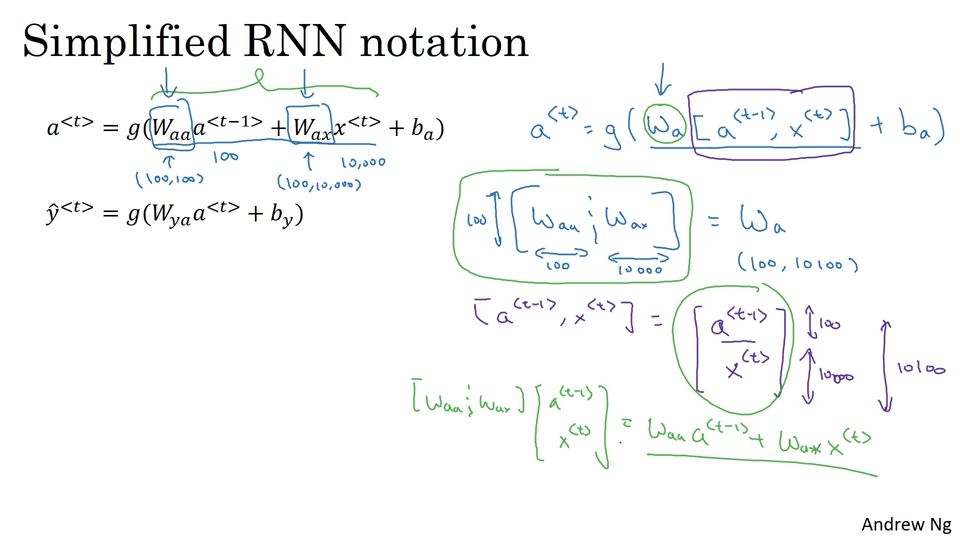 Simplified RNN notation
a<t> = g(Waa a<t−1> + Wax x<t> + ba)
100
10,000
(100,100)
(100,10,000)
ŷ<t> = g(Wya a<t> + by)
a<t> = g(Wa [a<t-1>, x<t>] + ba)
100 [Waa ; Wax] = Wa
100
10000
(100, 10100)
[a<t-1>, x<t>] = [a<t-1> x<t>]
100
10000
10100
[Waa ; Wax] [a<t-1> x<t>] = Waa a<t-1> + Wax x<t>
Andrew Ng